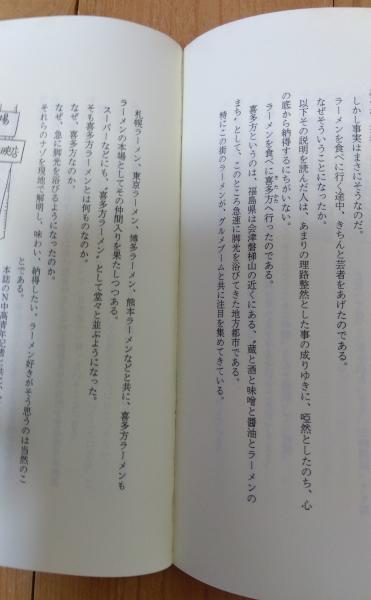 しかし事実はまさにそうなのだ。
ラーメンを食べに行く途中、きちんと芸者をあげたのである。
なぜそういうことになったか。
以下その説明を読んだ人は、あまりの理路整然とした事の成りゆきに、啞然としたのち、心
の底から納得するにちがいない。
ラーメンを食べに喜多方へ行ったのである。
喜多方というのは、福島県は会津磐梯山の近くにある、〝蔵と酒と味噌と醬油とラーメンの
まち〟として、このところ急速に脚光を浴びてきた地方都市である。
特にこの街のラーメンが、グルメブームと共に注目を集めてきている。
札幌ラーメン、東京ラーメン、博多ラーメン、熊本ラーメンなどと共に、喜多方ラーメンも
ラーメンの本場としてその仲間入りを果たしつつある。
スーパーなどにも、〝喜多方ラーメン〟として堂々と並ぶようになった。
そも喜多方ラーメンとは何ものなのか。
なぜ、喜多方なのか。
なぜ、急に脚光を浴びるようになったのか。
それらのナゾを現地で解明し、味わい、納得したい、ラーメン好きがそう思うのは当然のこ
とである。
本誌のN中高青年記者と共に、